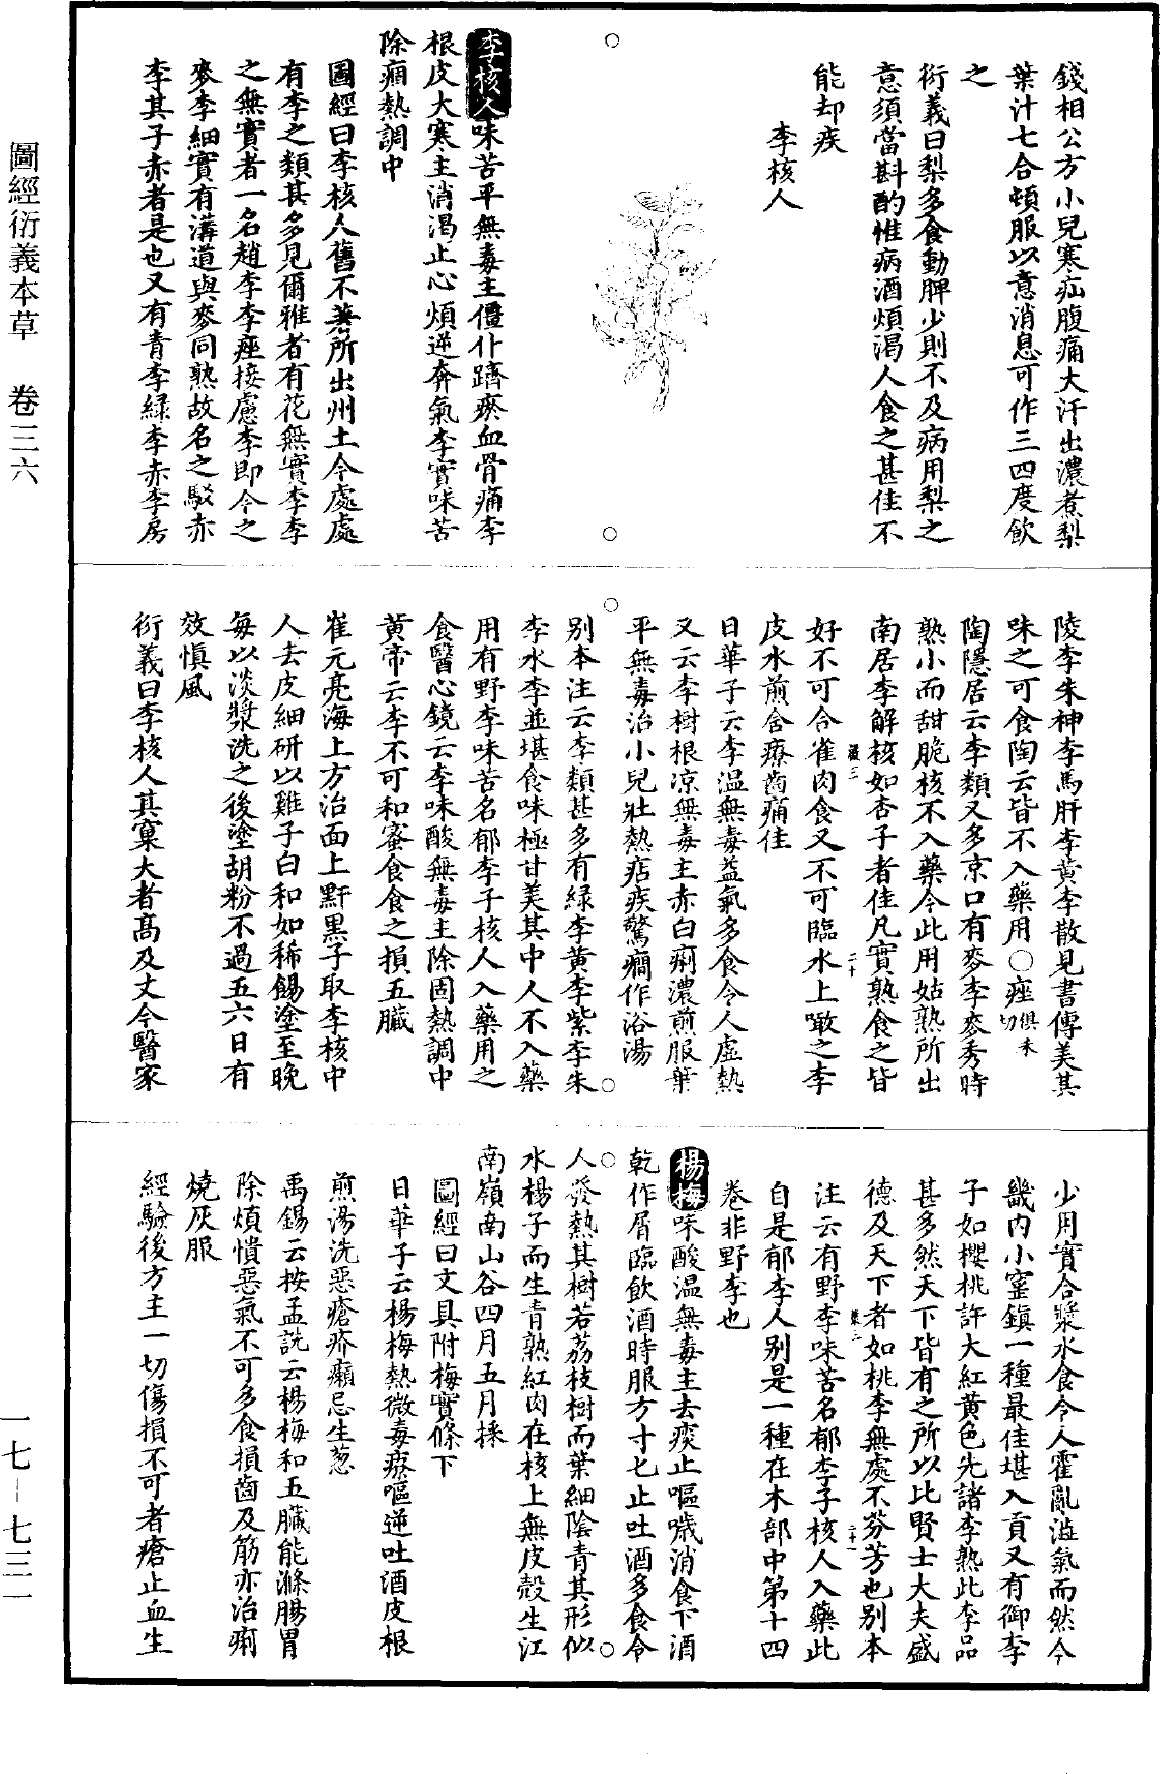 錢相公方小兒寒疝腹痛大汗出濃煮梨
葉汁七合頓服以意消息可作三四度飲
之
衍義曰梨多食動脾少則不及病用梨之
意須當斟酌惟病酒煩渴人食之甚佳不
能却疾
李核人
李核人味苦平無毒主僵仆躋瘀血骨痛李
根皮大寒主消渴止心煩逆奔氣李實味苦
除痼熱調中
圖經曰李核人舊不著所出州土今處處
有李之類甚多見爾雅者有花無實李李
之無實者一名趙李李痤接慮李即今之
麥李細實有溝道與麥同熟故名之駁赤
李其子赤者是也又有青李綠李赤李房
陵李朱神李馬肝李黄李散見書傳美其
味之可食陶云皆不入藥用○痤俱未切
陶隱居云李類又多京口有麥李麥秀時
熟小而甜脆核不入藥今此用姑熟所出
南居李解核如杏子者佳凡實熟食之皆
好不可合雀肉食又不可臨水上噉之李
皮水煎含療齒痛佳
日華子云李温無毒益氣多食令人虛熱
又云李樹根凉無毒主赤白痢濃煎服葉
平無毒治小兒壯熱痁疾驚癎作浴湯
别本注云李類甚多有綠李黄李紫李朱
李水李並堪食味極甘美其中人不入藥
用有野李味苦名郁李子核人入藥用之
食醫心鏡云李味酸無毒主除固熱調中
黄帝云李不可和蜜食食之損五臟
崔元亮海上方治面上䵟黑子取李核中
人去皮細研以雞子白和如稀餳塗至晚
每以淡漿洗之後塗胡粉不過五六日有
效慎風
衍義曰李核人其窠大者高及丈今醫家
少用實合漿水食令人霍亂澁氣而然今
畿内小窰鎮一種最佳堪入貢又有御李
子如櫻桃許大紅黄色先諸李熟此李品
甚多然天下皆有之所以比賢士大夫盛
德及天下者如桃李無處不芬芳也别本
注云有野李味苦名郁李子核人入藥此
自是郁李人别是一種在木部中第十四
卷非野李也
楊梅味酸温無毒主去痰止嘔噦消食下酒
乾作屑臨飲酒時服方寸匕止吐酒多食令
人發熱其樹若荔枝樹而葉細陰青其形似
水楊子而生青熟紅肉在核上無皮殻生江
南嶺南山谷四月五月採
圖經曰文具附梅實條下
日華子云楊梅熱微毒療嘔逆吐酒皮根
煎湯洗惡瘡疥癩忌生葱
禹錫云桉孟詵云楊梅和五臟能滌腸胃
除煩憒惡氣不可多食損齒及筋亦治痢
燒灰服
經驗後方主一切傷損不可者瘡止血生
圖經衍義本草　卷三六
一七－七三一